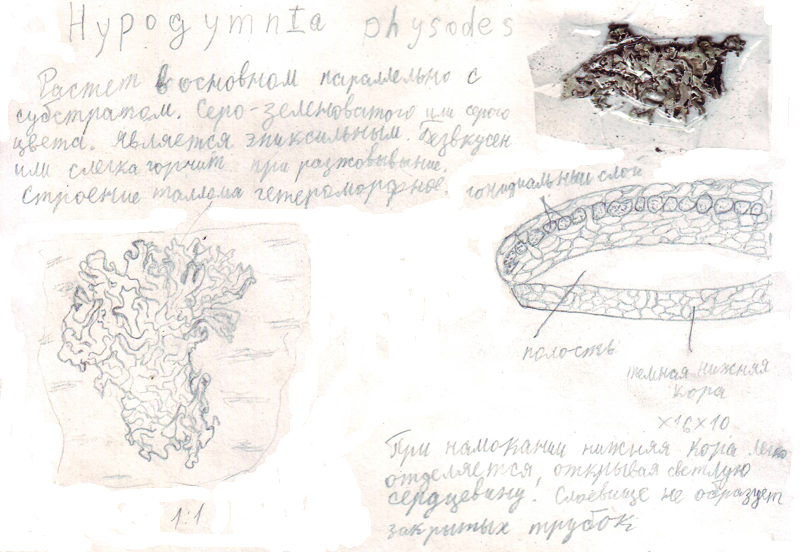 Hypogymnia physodes
Растет в основном параллельно с
субстратом. Серо-зеленоватого или серого
цвета. Является эпиксильным. Безвкусен
или слегка горчит при разжовывание.
Строение таллома гетероморфное.
гонидиальный слой
полость
темная нижняя
кора
×16×10
При намокании нижняя кора легко
отделяется, открывая светлую
сердцевину. Слоевище не образует
закрытых трубок
1:1